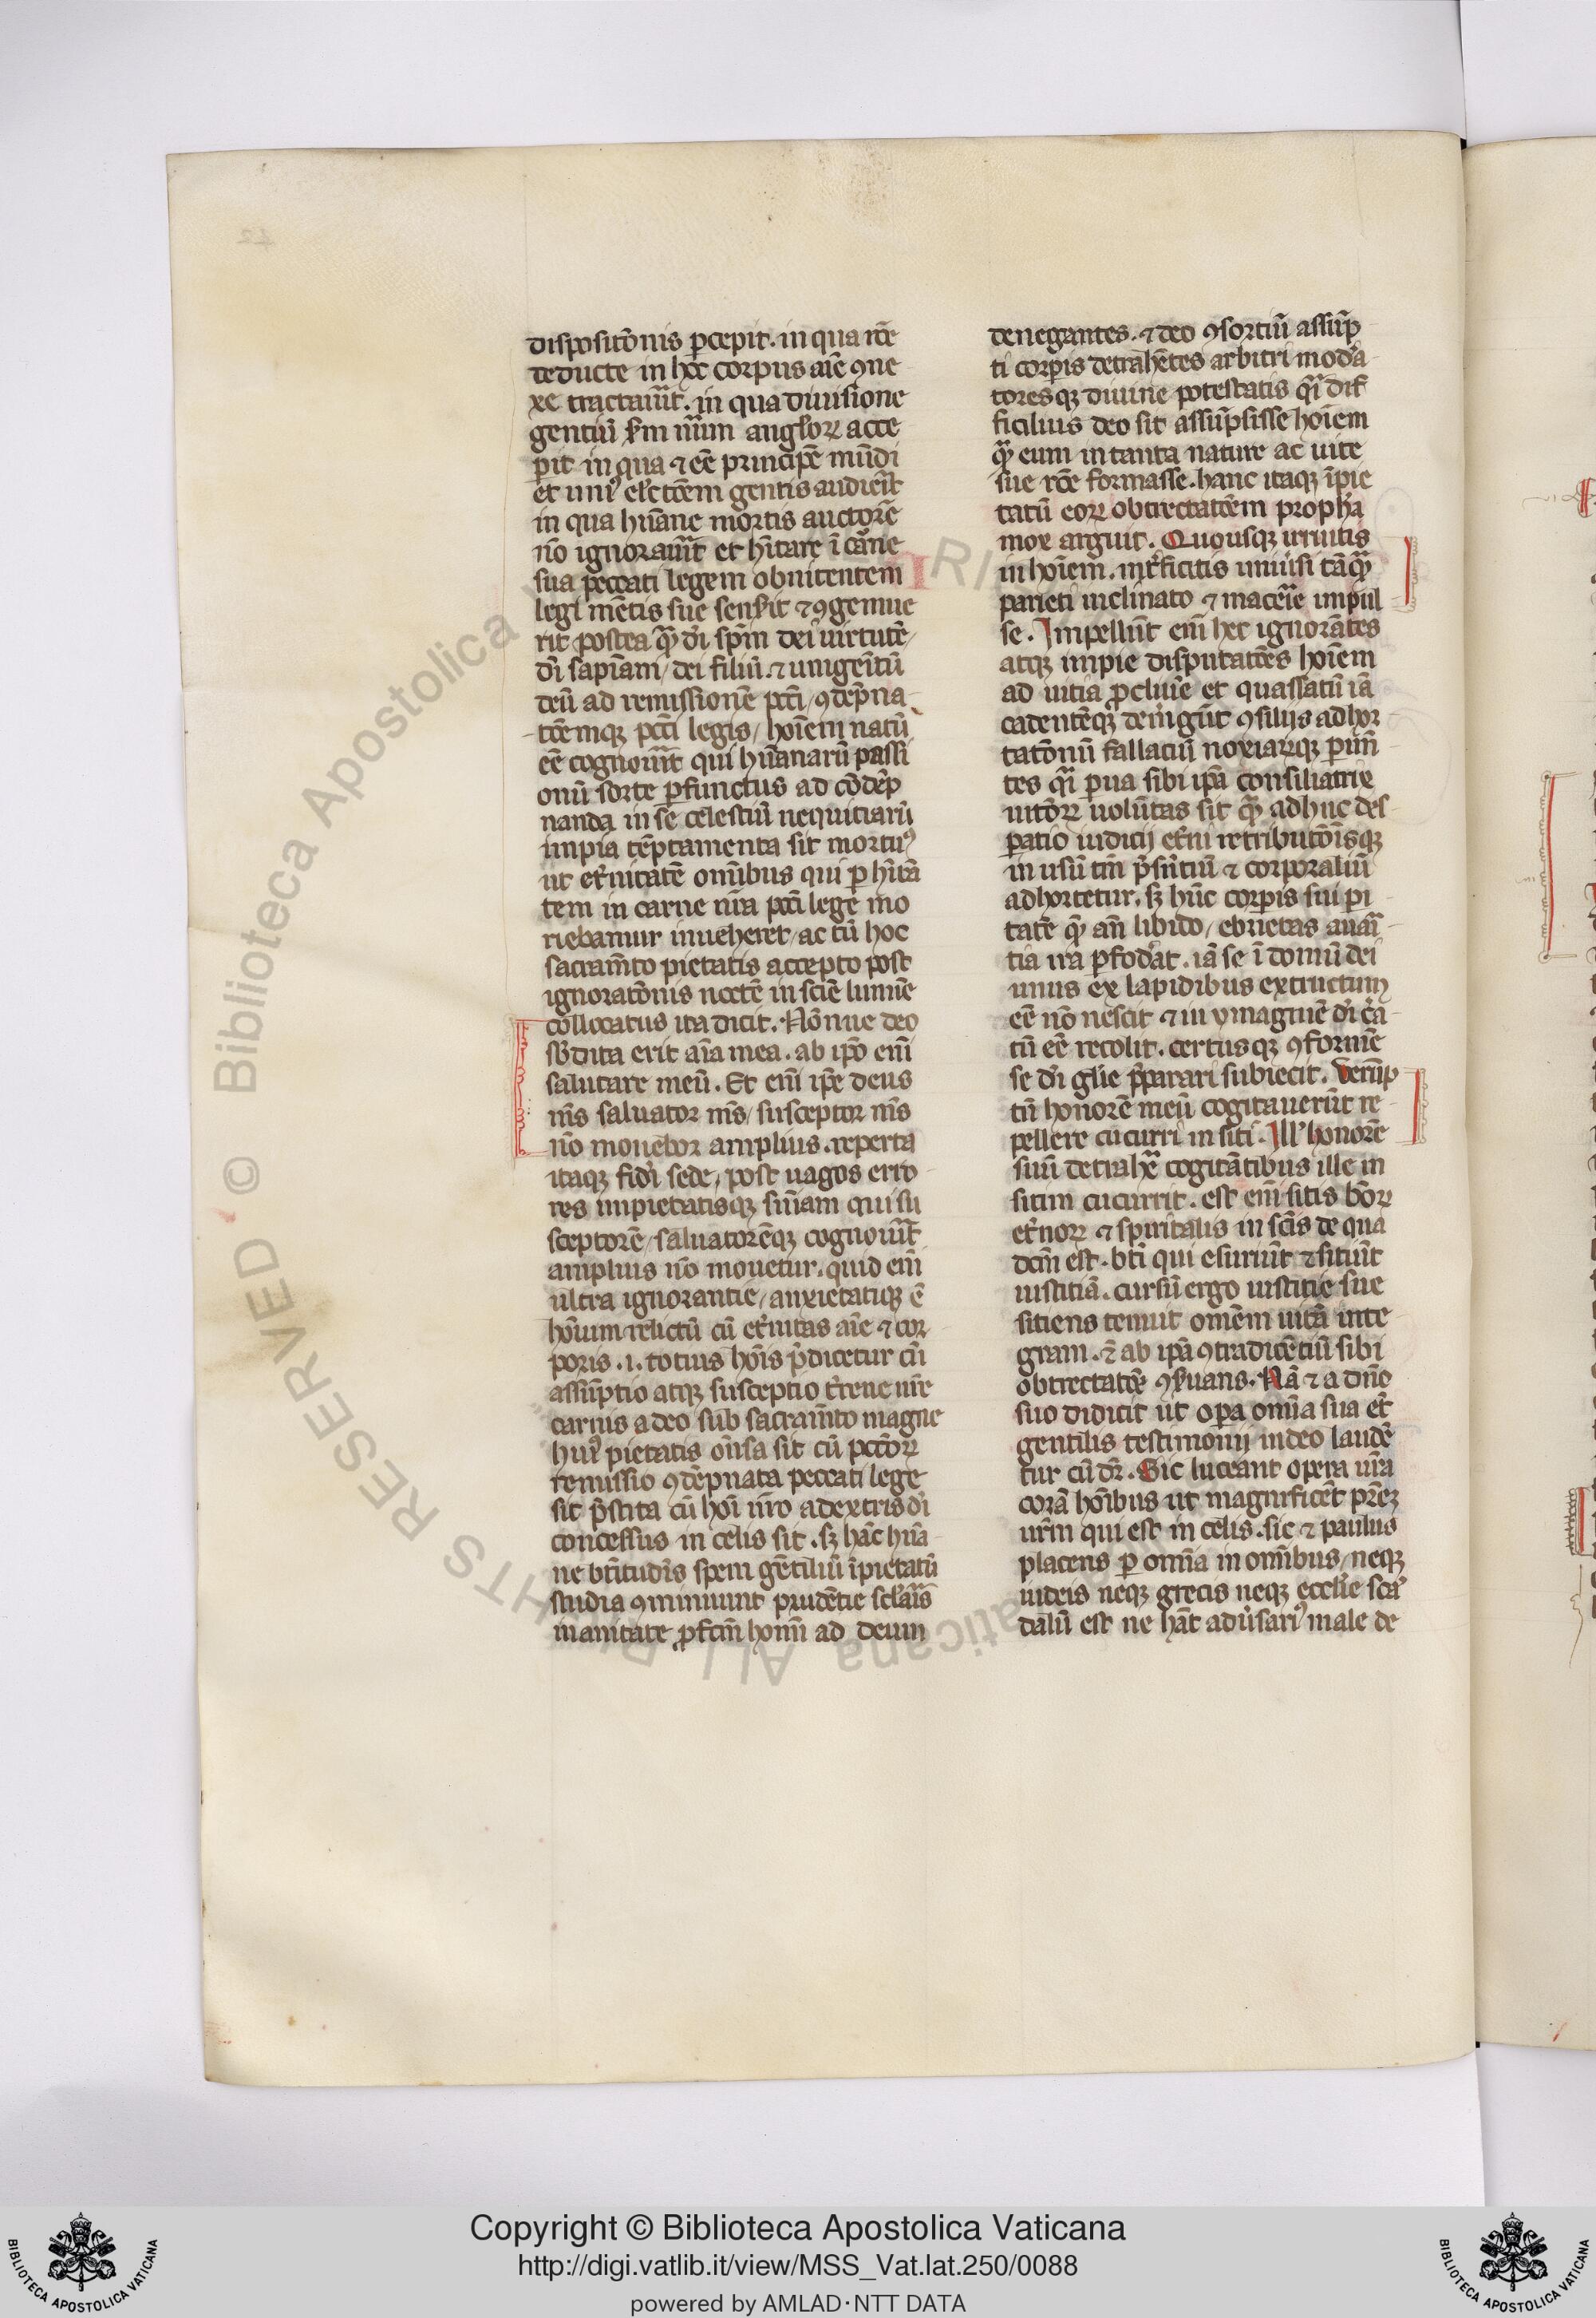 dispositōnis ꝑcepit. in qua rōe
deducte in hoc corpus aīe ꝯne
xe tractauīt. in qua diuisione
gentiū ẜm nūm angłoꝝ acce
pit in qua ⁊ eē principē mūdi
et uniꝰ elcēōem gentis audierīt
in qua hūane mortis auctorē
nō ignorauīt et hītare ī carne
sua peccati legem obnitentem
legi mētis sue sensit ⁊ ꝯgemue
rit postea qͣ dī spm̄ dei uirtutē
dī sapīam/ dei filiū. ⁊ unigeītū
deū ad remissionē pcc̄i/ ꝯdēpna
tōemqꝫ pcc̄i legis/ hoīem natū
eē cognouīt qui hūanarū passi
onū sorte ꝑfunctus ad cōdēp
nanda in se celestiū nequitiarū
impia tēptamenta sit mortuꝰ
ut et̄nitatē om̄ibus qui ꝑ hītā
tem in carne nr̄a pcc̄i legē mo
riebamur inueheret/ ac tū hoc
sacram̄to pietatis accepto post
ignoratōnis noctē in sciē lumīe
collocatus ita dicit. Nōnne deo
sb̄dita erit aīa mea. ab ip̄o enī
salutare meū. Et enī ip̄e deus
m̄s saluator m̄s/ susceptor m̄s
nō mouebor amplius. reperta
itaqꝫ fidī sede/ post uagos erro
res impietatisqꝫ sūiam qui su
sceptorē/ saluatorēqꝫ cognouīt
amplius nō mouetur. quid enī
ultra ignorantie/ anxietatiqꝫ ē
hōium relictū cū et̄nitas aīe ⁊ cor
poris .i. totius hōis p̄dicetur cū
assūptio atqꝫ susceptio t̄rene nr̄e
carnis a deo sub sacram̄to magne
huiꝰ pietatis oñsa sit cū pcc̄oꝝ
remissio ꝯdēpnata peccati lege
sit p̄stita cū hoī nr̄o a dextris dī
concessus in celis sit. sꝫ hāc hūa
ne btītudīs spem gētiliū īpietatū
studia ꝯminuunt prudētie sc̄laris
inanitate ꝓfcm̄ homī ad deum
denegantes. ⁊ deo ꝯsortiū assūp
ti corꝑis detrahētes arbitri modͣa
toresqꝫ diuine potestatis qͣi dif
ficilius deo sit assūpsisse hoīem
qͣ eum in tanta nature ac uite
sue rōe formasse. hanc itaqꝫ īpie
tatū eoꝝ obtrectatōem propha
mox arguit. Quousqꝫ irruitis
in hoīem. int̄ficitis uniūsi tāqͣ
parieti inclinato ⁊ macerie impul
se. Impellūt enī hec ignorātes
atqꝫ impie disputatōes hoīem
ad uitia ꝓcluīe et quassatū iā
cadentēqꝫ demgūt ꝯsilijs adhor
tatōnū fallaciū noxiarūqꝫ ꝑim̄
tes qͣi ꝑua sibi ip̄a consiliatrix
uitōꝝ uolūtas sit qͣ adhuc des
ꝑatio iudicij et̄ni retributōisqꝫ
in usū tm̄ p̄sn̄tiū ⁊ corporaliū
adhortetur. sꝫ hūc corꝑis sui pi
tatē qͣ an̄ libido/ ebrietas auaͥ
tia ira ꝑfodͣat. iā se ī domū dei
unus ex lapidibus extructum
eē nō nescit ⁊ in ymaginē dī cͣa
tū eē recolit. certusqꝫ ꝯformē
se dī glīe p̄parari subiecit. Verūp
tū honorē meū cogitauerūt re
pellere cucurri in siti. Ill' honorē
suū detrahe͛ cogitātibus ille in
sitim cucurrit. est enī sitis bōꝝ
et̄noꝝ ⁊ spiritalis in scīs de qua
dcm̄ est. bti qui esuriūt ⁊ sitiūt
iustitiā. cursū ergo iustitie sue
sitiens tenuit omēm uitā inte
gram. ⁊ ab ip̄a ꝯtradicētiū sibi
obtrectatōe ꝯẜuans. Nā ⁊ a dn̄o
suo didicit ut oꝑa omīa sua et̄
gentilis testimonij in deo laudē
tur cū dr̄. Sic luceant opera ur̄a
corā hōibus ut magnificēt pr̄eꝫ
ur̄m qui est in celis. sic ⁊ paulus
placens ꝑ omīa in om̄ibus/ neqꝫ
iudeis neqꝫ grecis neqꝫ ecclīe scā
dalū est ne hāt aduͥsariꝰ male de
Copyright © Biblioteca Apostolica Vaticana
http://digi.vatlib.it/view/MSS_Vat.lat.250/0088
powered by AMLAD·NTT DATA
BIBLIOTECA APOSTOLICA VATICANA
BIBLIOTECA APOSTOLICA VATICANA